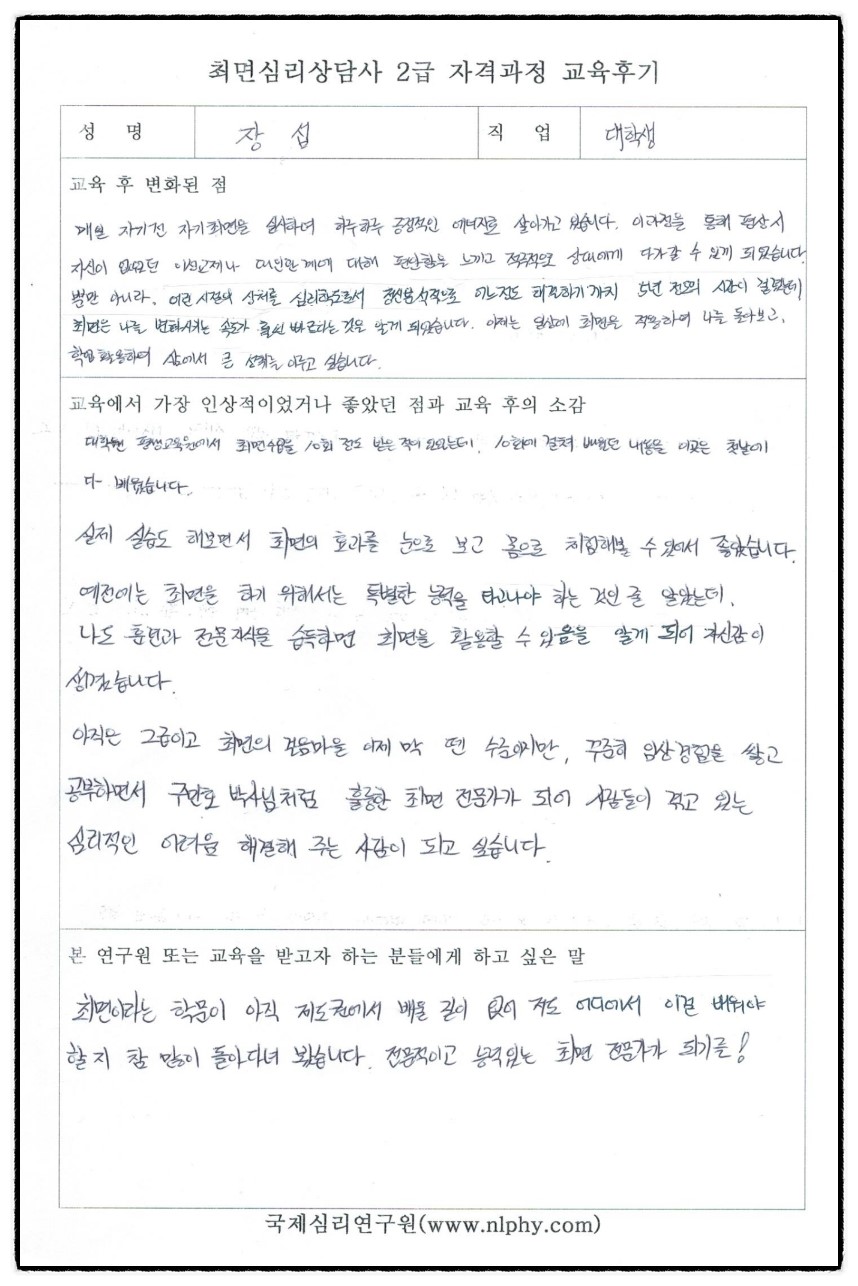 최면심리상담사 2급 자격과정 교육후기
성 명 장 섭 직 업 대학생
교육 후 변화된 점
매일 자기전 자기최면을 실시하며 하루하루 긍정적인 에너지로 살아가고 있습니다. 이 과정을 통해 평상시
자신이 없었던 이성교제나 대인관계에 대해 편안함을 느끼고 적극적으로 상대에게 다가갈 수 있게 되었습니다
뿐만 아니라, 어린 시절의 상처를 심리학도로서 정신분석적으로 어느정도 해결하기까지 5년 전후의 시간이 걸렸는데
최면은 나를 변화시키는 속도가 훨씬 빠르다는 것을 알게 되었습니다. 이제는 일상에 최면을 적용하여 나를 돌아보고,
학업 활용하여 삶에서 큰 성취를 이루고 싶습니다.
교육에서 가장 인상적이었거나 좋았던 점과 교육 후의 소감
대학 평생교육원에서 최면수업을 10회 정도 받은 적이 있었는데, 10회에 걸쳐 배웠던 내용을 이곳은 첫날에
다 배웠습니다.
실제 실습도 해보면서 최면의 효과를 눈으로 보고 몸으로 체험해볼 수 있어서 좋았습니다.
예전에는 최면을 하기 위해서는 특별한 능력을 타고나야 하는 것인 줄 알았는데,
나도 훈련과 전문지식을 습득하면 최면을 활용할 수 있음을 알게 되어 자신감이
생겼습니다.
아직은 2급이고 최면의 걸음마를 이제 막 뗀 수준이지만, 꾸준히 임상경험을 쌓고
공부하면서 구만호 박사님처럼 훌륭한 최면 전문가가 되어 사람들이 겪고 있는
심리적인 어려움 해결해 주는 사람이 되고 싶습니다.
본 연구원 또는 교육을 받고자 하는 분들에게 하고 싶은 말
최면이라는 학문이 아직 제도권에서 배울 길이 없어 저도 어디에서 이걸 배워야
할지 참 많이 돌아다녀 봤습니다. 전문적이고 능력있는 최면 전문가가 되기를!
국제심리연구원(www.nlphy.com)